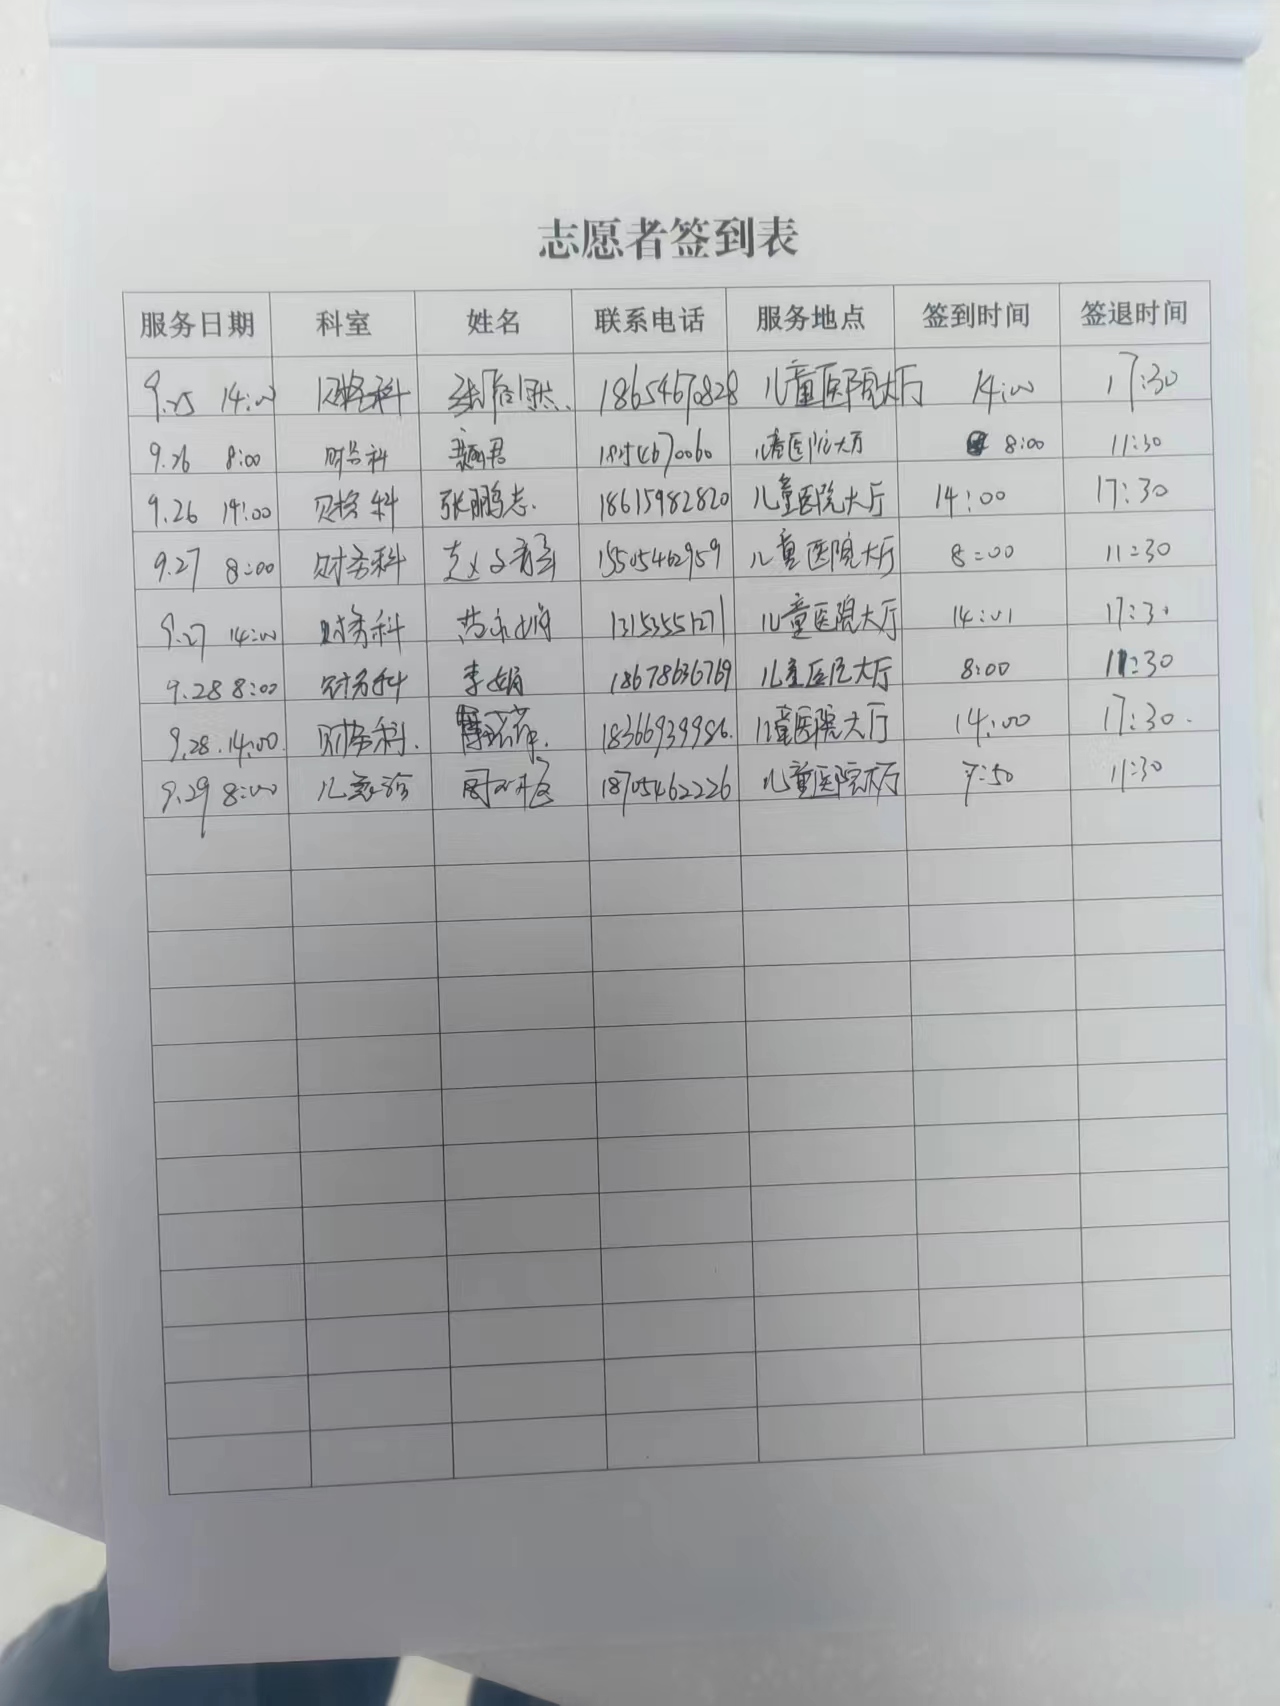 志愿者签到表
服务日期 科室 姓名 联系电话 服务地点 签到时间 签退时间
9.25 14:00 财务科 18654670828 儿童医院大厅 14:00 17:30
9.26 8:00 财务科 儿童医院大厅 8:00 11:30
9.26 14:00 财务科 张鹏志. 18615982820 儿童医院大厅 14:00 17:30
9.27 8:00 财务科 15505462959 儿童医院大厅 8:00 11:30
9.27 14:00 财务科 儿童医院大厅 14:01 17:30
9.28 8:00 财务科 李娟 18678636769 儿童医院大厅 8:00 11:30
9.28. 14:00. 财务科. 18366939986. 儿童医院大厅 14:00 17:30.
9.29 8:00 儿急诊 18705462226 儿童医院大厅 7:50 11:30